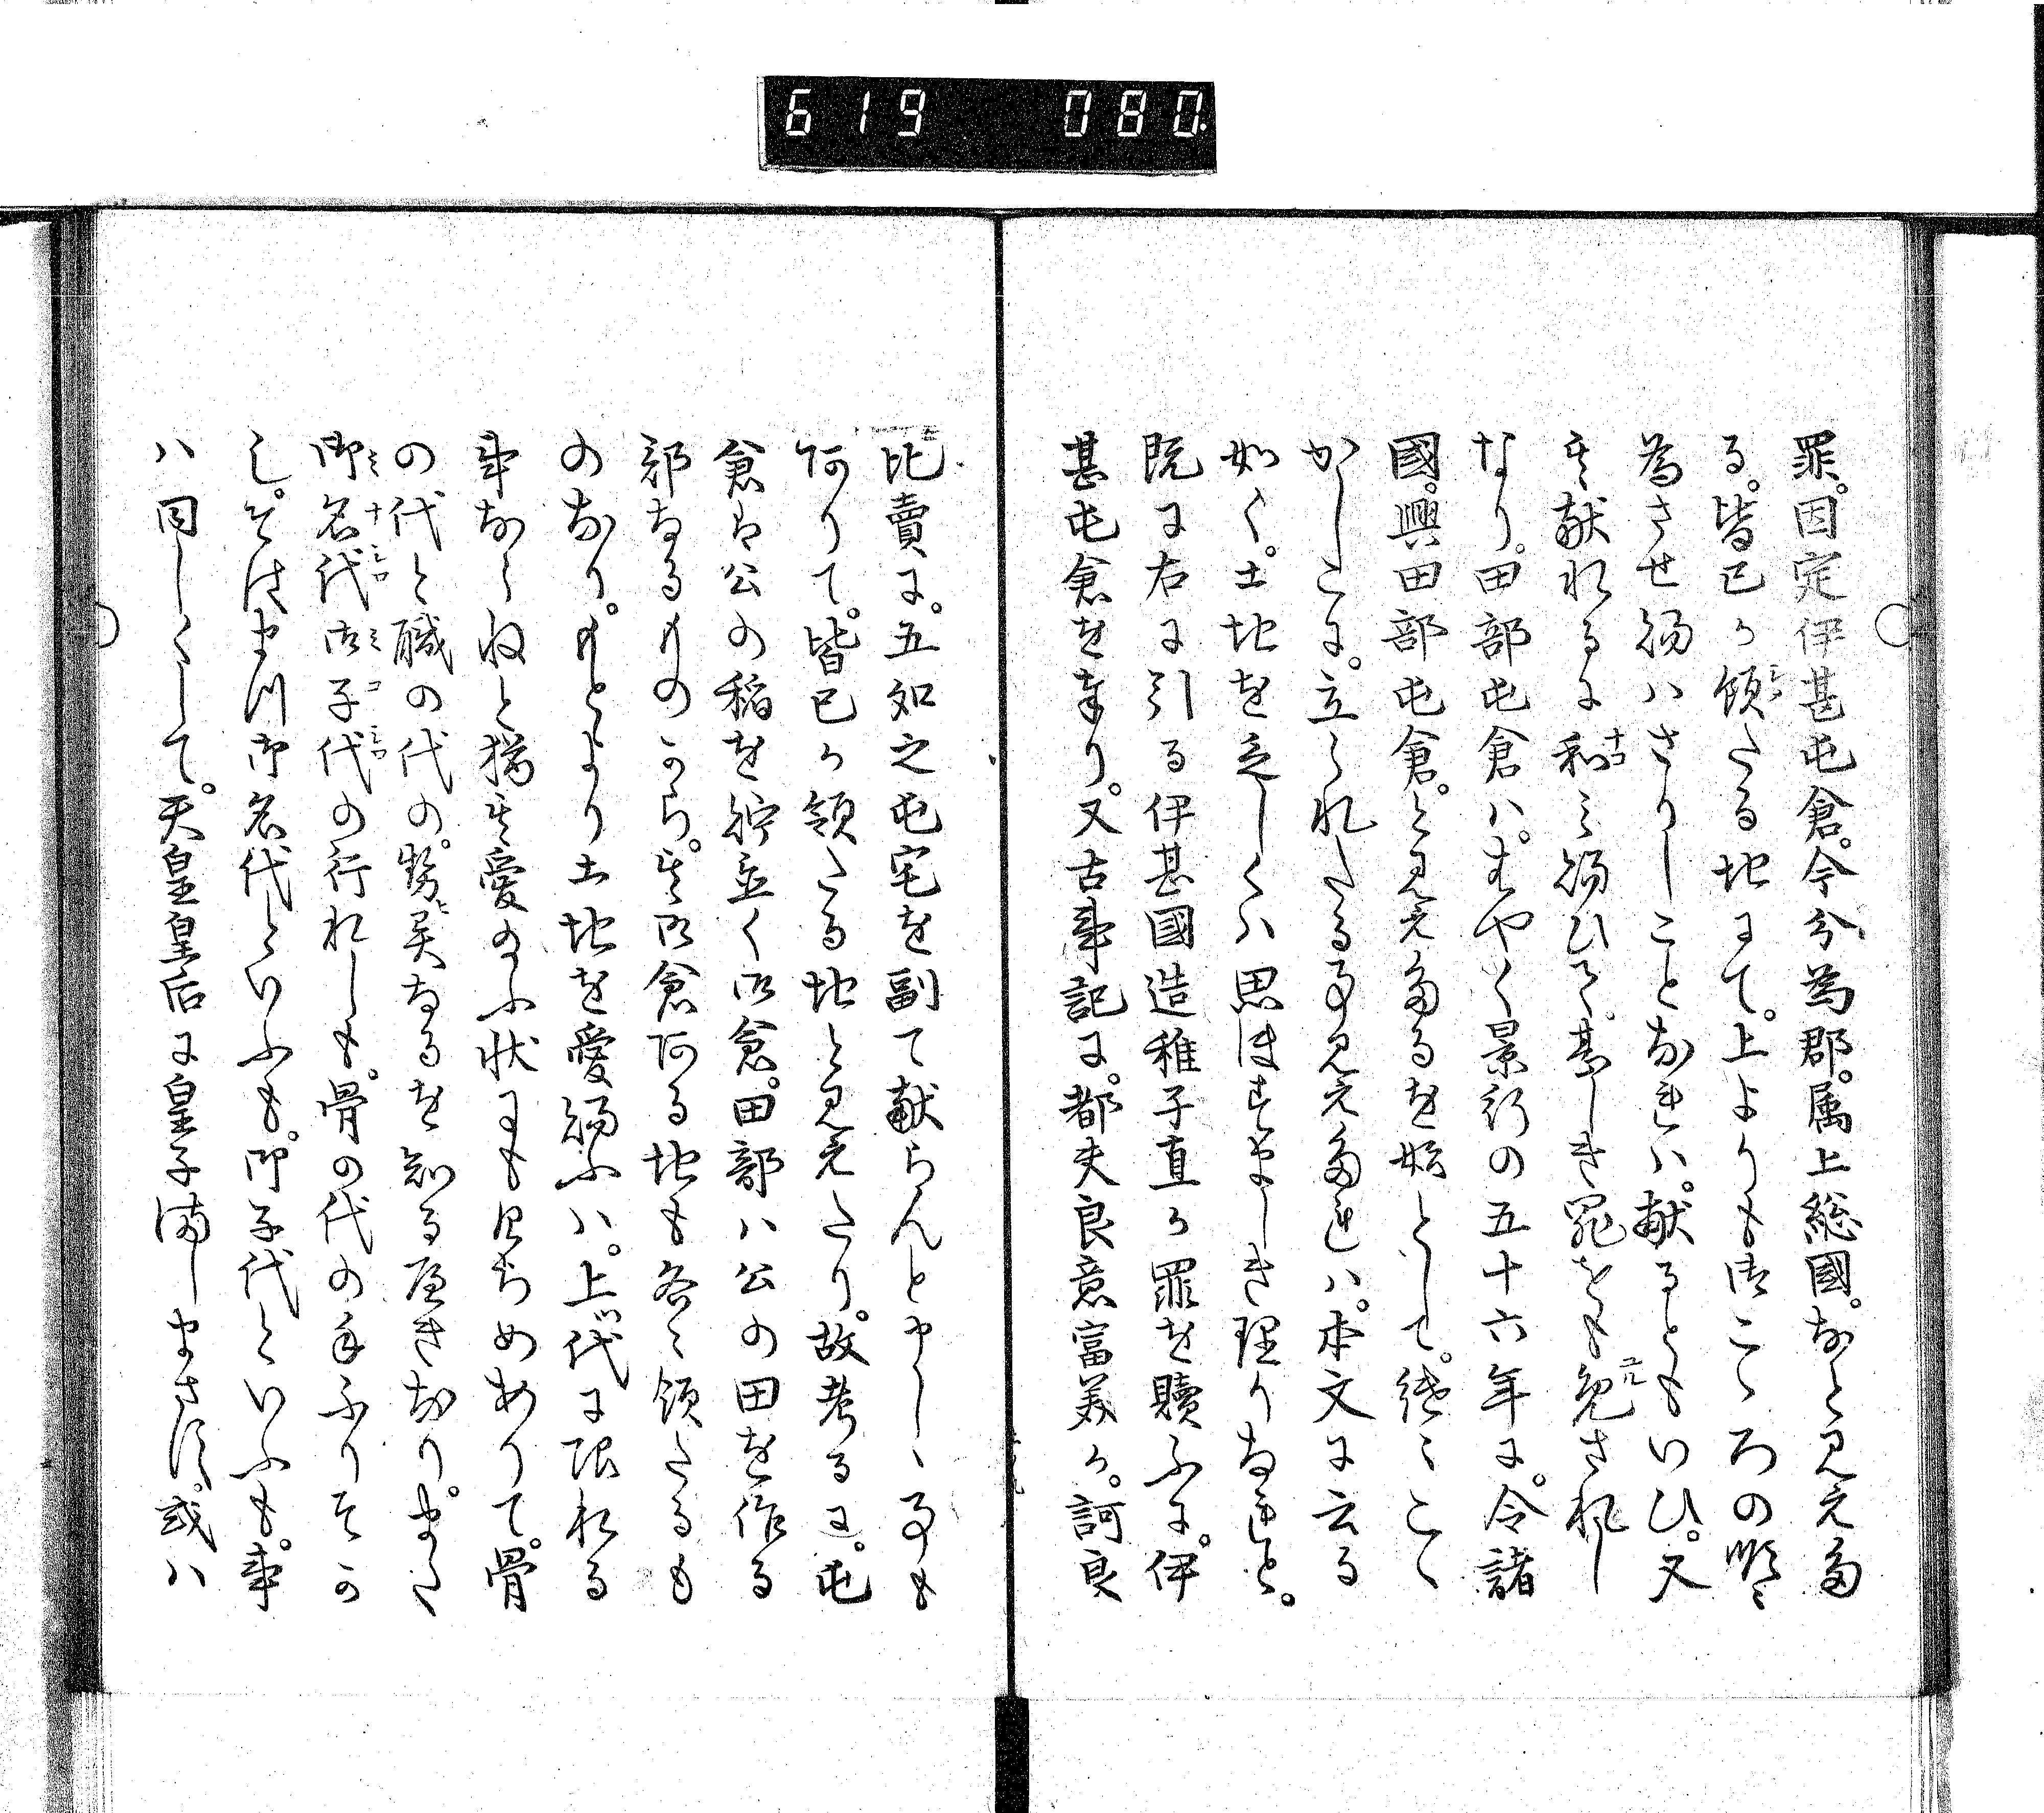 619 080.
罪。因定伊甚屯倉。今分為郡。属上総國。なと見えた
る。皆己か領たる地にて。上よりも御こゝろの順〻
為させ給ハさりしことなれハ。献るともいひ。又
其献れるに和み給ひて。甚しき罪をも免されし
なり。田部屯倉ハ。はやく景行の五十六年に。令諸
國。興田部屯倉。と見えたるを始として。継〻こゝ
かしこに。立られたる事見えたれハ。本文に云る
如く。土地を乏しくハ思ほすましき理りなれと。
既に右に引る伊甚國造稚子直か罪を贖ふに。伊
甚屯倉を奉り。又古事記に。都夫良意富美か。訶良
比賣に。五処之屯宅を副て献らんと申しゝ事も
ありて。皆己か領たる地と見えたり。故考るに。屯
倉は公の稲を貯置く御倉。田部ハ公の田を作る
部なるものから。其御倉ある地も各〻領たるも
のなり。もとより土地を愛給ふハ。上代に限れる
事ならねと猶其愛のふ状にもけちめありて。骨
の代と職の代の。勢異なるを知る歴きなり。また
御名代御子代の行れしも。骨の代の手ふりそか
し。そはまつ御名代といふも。御子代といふも。事
ハ同しくして。天皇皇后に皇子満しまさす。或ハ